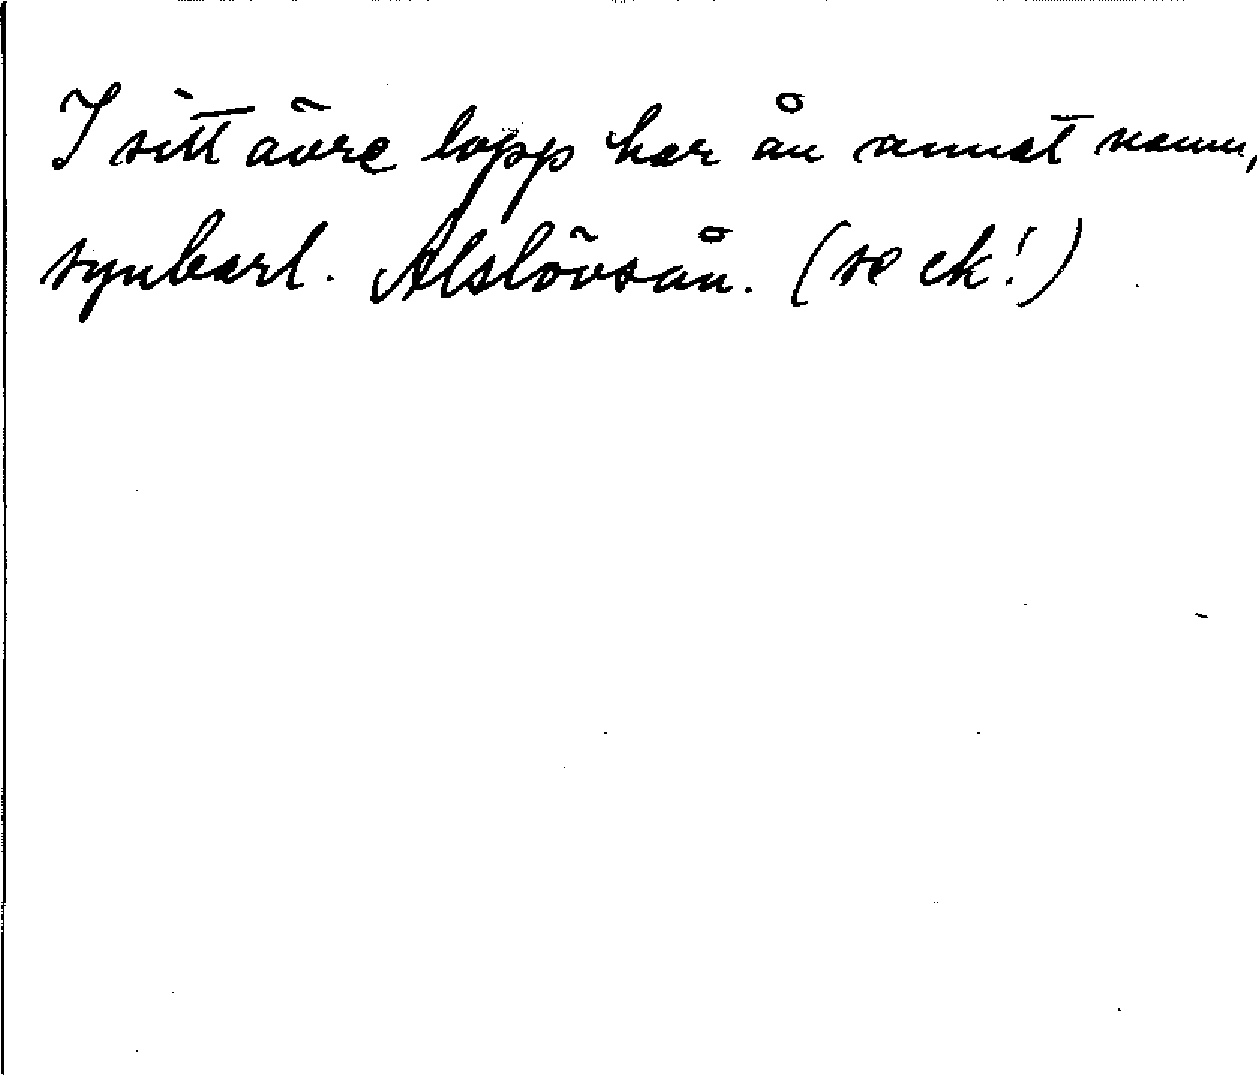 I sitt övre lopp har ån annat namn,
synbarl. Alslövsån. (se ek!)